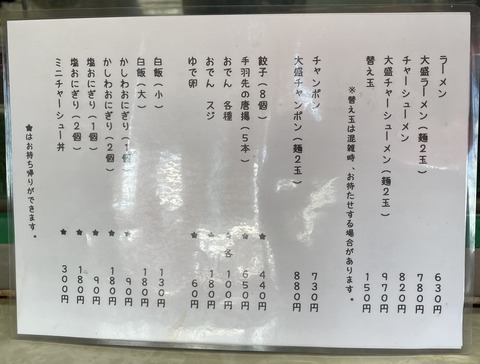 ラーメン 630円
大盛ラーメン(麺2玉) 780円
チャーシューメン 820円
大盛チャーシューメン(麺2玉) 970円
替え玉 150円
※替え玉は混雑時、お待たせする場合があります。
チャンポン 730円
大盛チャンポン(麺2玉) 880円
餃子(8個) ★ 440円
手羽先の唐揚(5本) ★ 650円
おでん 各種 ★ 各 100円
おでん スジ ★ 180円
ゆで卵 ★ 60円
白飯(小) 130円
白飯(大) 180円
かしわおにぎり(1個) ★ 90円
かしわおにぎり(2個) ★ 180円
塩おにぎり(1個) ★ 90円
塩おにぎり(2個) ★ 180円
ミニチャーシュー丼 ★ 300円
★はお持ち帰りができます。